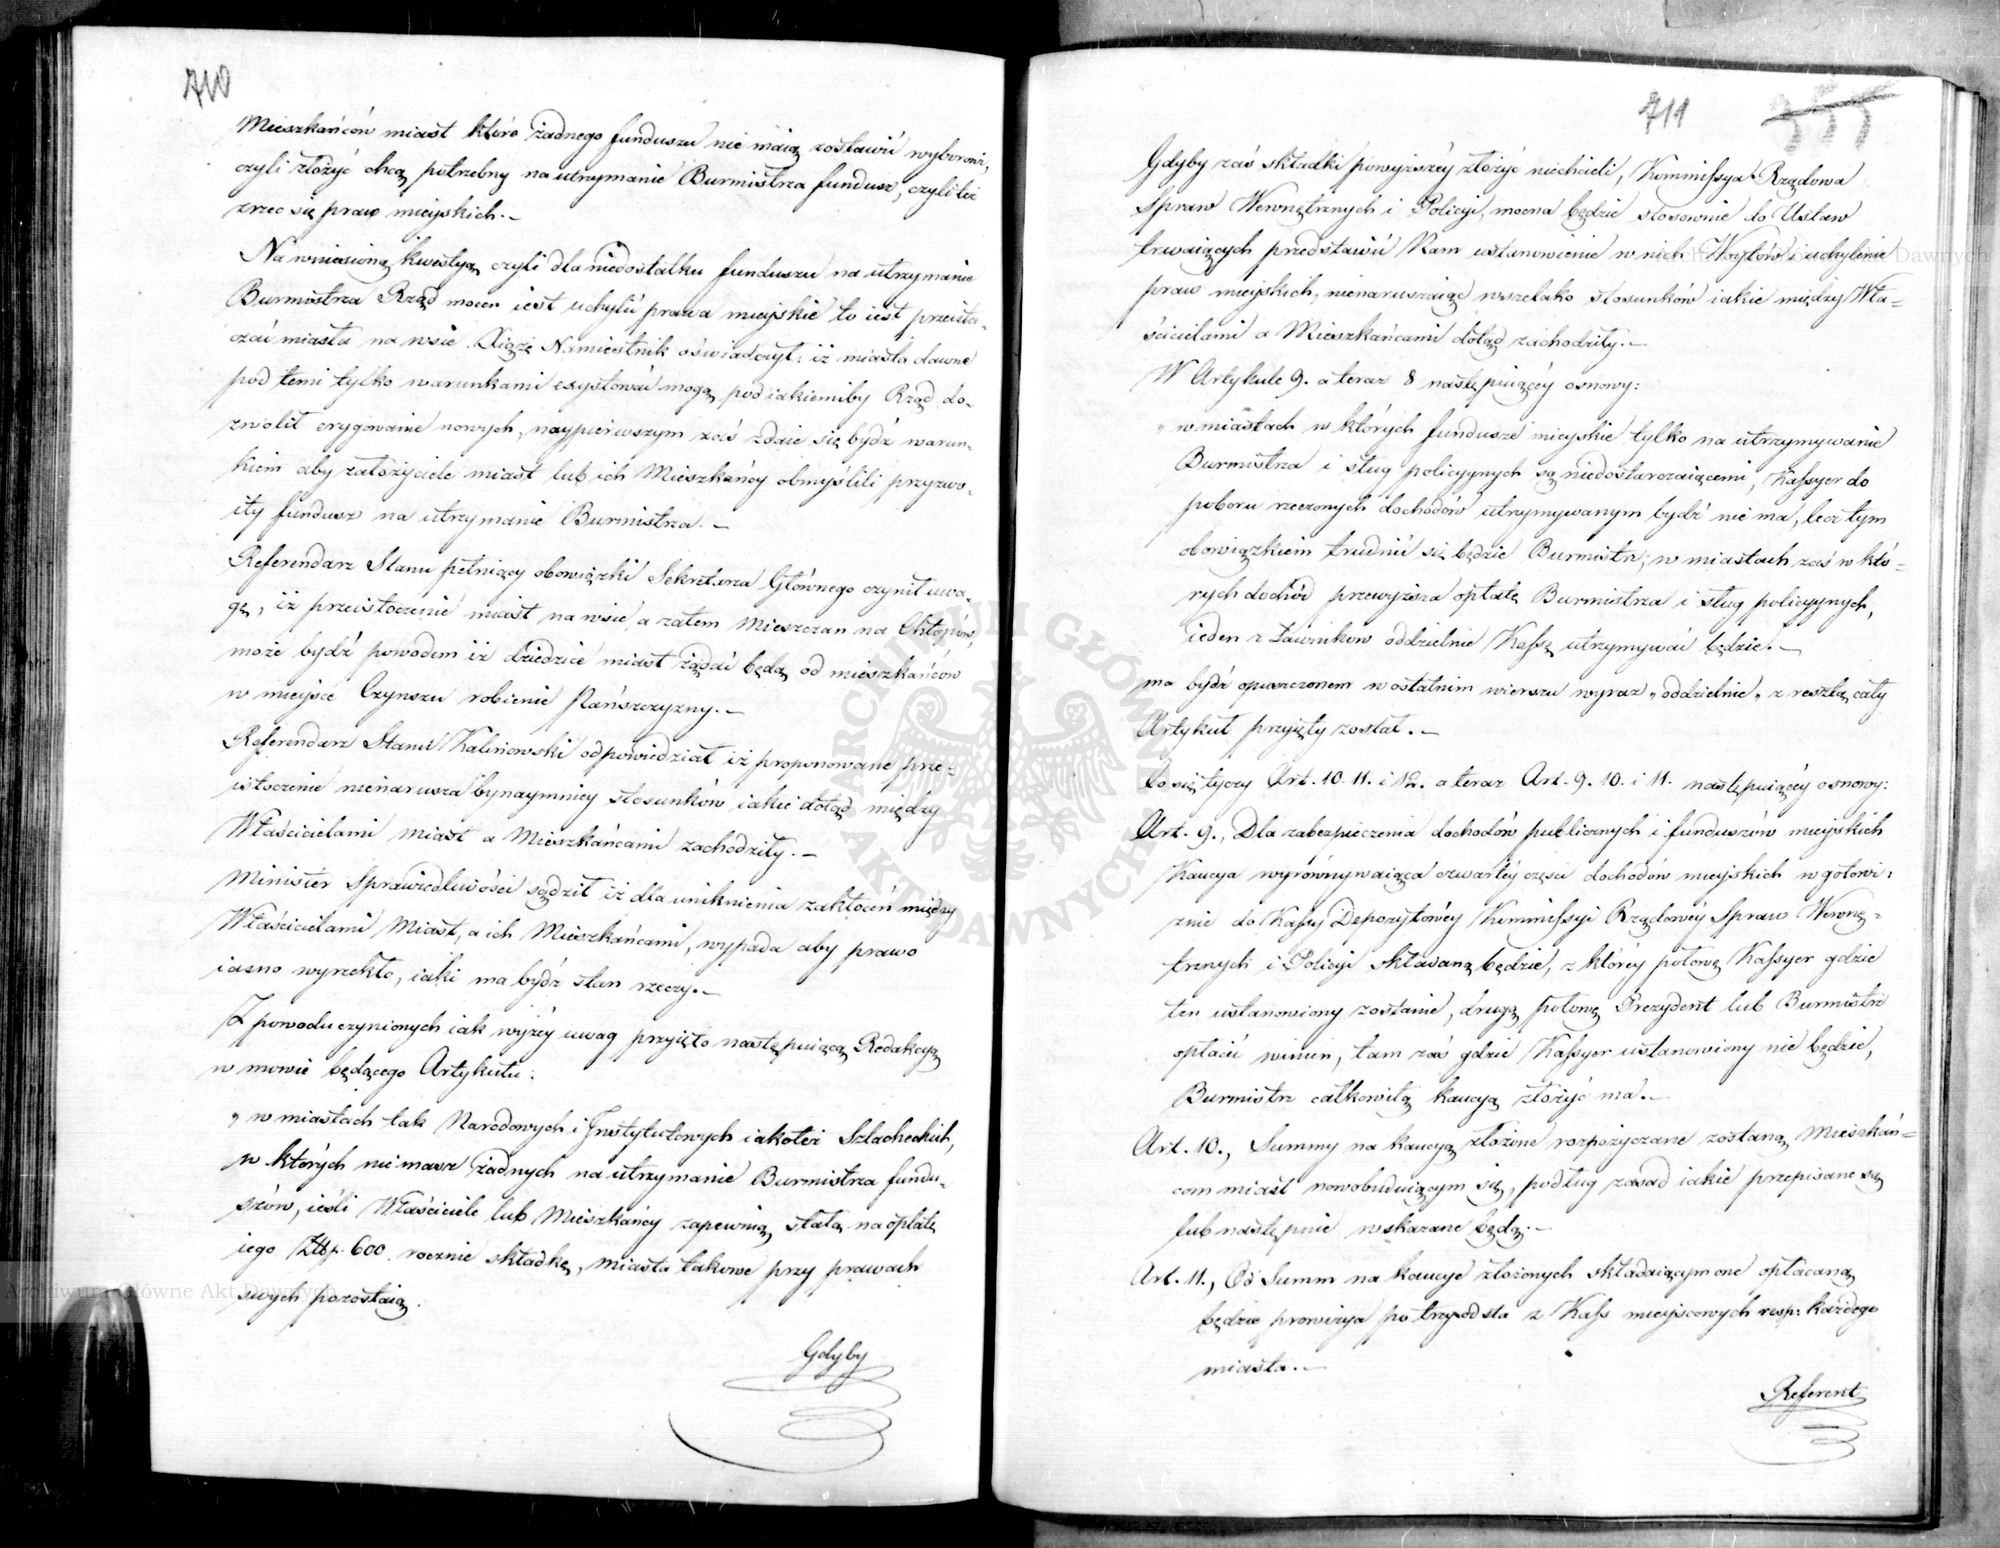 710
Mieszkańców miast które żadnego funduszu nie maią zostawić wyborowi,
czyli złożyć chcą potrzebny na utrzymanie Burmistrza fundusz, czyli też
zrzec się praw mieyskich.–
Na wniesioną kwestyą czyli dla niedostatku funduszu na utrzymanie
Burmistrza Rząd mocen iest uchylić prawa mieyskie to iest przeista-
czać miasta na wsie. Xiążę Namiestnik oświadczył: iż miasta dawne
pod temi tylko warunkami exystować mogą, pod iakiemiby Rząd do-
zwolił erygowanie nowych, naypierwszym zaś zdaie się bydź warun-
kiem aby założyciele miast lub ich Mieszkańcy obmyślili przyzwo-
ity fundusz na utrzymanie Burmistrza.–
Referendarz Stanu pełniący obowiązki Sekretarza Głównego czynił uwa-
gę, iż przeistoczenie miast na wsie, a zatem Mieszczan na Chłopów,
może bydź powodem iż dziedzice miast żądać będą od mieszkańców
w mieysce Czynszu robienie Pańszczyzny.–
Referendarz Stanu Kalinowski odpowiedział iż proponowane prze-
istoczenie nienarusza bynaymniey stosunków iakie dotąd między
Właścicielami miast a Mieszkańcami zachodziły.–
Minister Sprawiedliwości sądził iż dla uniknienia zakłóceń między
Właścicielami Miast, a ich Mieszkańcami, wypada aby prawo
iasno wyrzekło, iaki ma bydź stan rzeczy.–
Z powodu czynionych iak wyżéy uwag przyięto następuiącą Redakcyą
w mowie będącego Artykułu:
„ w miastach tak Narodowych i Instytutowych iakoteż Szlacheckich,
w których nie masz żadnych na utrzymanie Burmistrza fundu-
szów, ieśli Właściciele lub Mieszkańcy zapewnią stałą na opłatę
iego Złtp. 600. rocznie składkę, miasta takowe przy prawach
swych pozostaią.
Gdyby
711
Gdyby zaś składki powyższéy złożyć niechcieli, Kommissya Rządowa
Spraw Wewnętrznych i Policyi, mocna będzie stosownie do Ustaw
trwaiących przedstawić Nam ustanowienie w nich Woytów i uchylenie
praw mieyskich, nienaruszaiąc wszelako stosunków iakie między Wła-
ścicielami a Mieszkańcami dotąd zachodziły.–
W Artykule 9. a teraz 8 następuiącéy osnowy:
„ w miastach w których fundusze mieyskie tylko na utrzymywanie
Burmistrza i sług policyynych są niedostarczaiącemi, Kassyer do
poboru rzeczonych dochodów utrzymywanym bydź nie ma, lecz tym
obowiązkiem trudnić się będzie Burmistrz; w miastach zaś w któ-
rych dochód przewyższa opłatę Burmistrza i sług policyynych,
ieden z Ławników oddzielnie Kassę utrzymywać będzie.–
ma bydź opuszczonem w ostatnim wierszu wyraz „oddzielnie„ z resztą cały
Artykuł przyięty został.–
Co się tyczy Art. 10. 11. i 12. a teraz Art. 9. 10. i 11. następuiącéy osnowy:
Art. 9., Dla zabezpieczenia dochodów publicznych i funduszów mieyskich
Kaucya wyrównywaiąca czwartéy części dochodów mieyskich w gotowi:
znie do Kassy Depozytowéy Kommissyi Rządowéy Spraw Wewnę-
trznych i Policyi składaną będzie, z któréy połowę Kassyer gdzie
ten ustanowiony zostanie, drugą połowę Prezydent lub Burmistrz
opłacić winien, tam zaś gdzie Kassyer ustanowiony nie będzie,
Burmistrz całkowitą kaucyą złożyć ma.–
Art. 10., Summy na kaucyą złożone rozpożyczane zostaną Mieszkań-
com miast nowobuduiącym się, podług zasad iakie przepisane są
lub następnie wskazane będą.–
Art. 11., Od Summ na kaucye złożonych składaiącym one opłacaną
będzie prowizya po trzy od sta z Kass mieyscowych resp: każdego
miasta.–
Referent
Archiwum Główne Akt Dawnych
ARCHIWUM GŁÓWNE AKT DAWNYCH